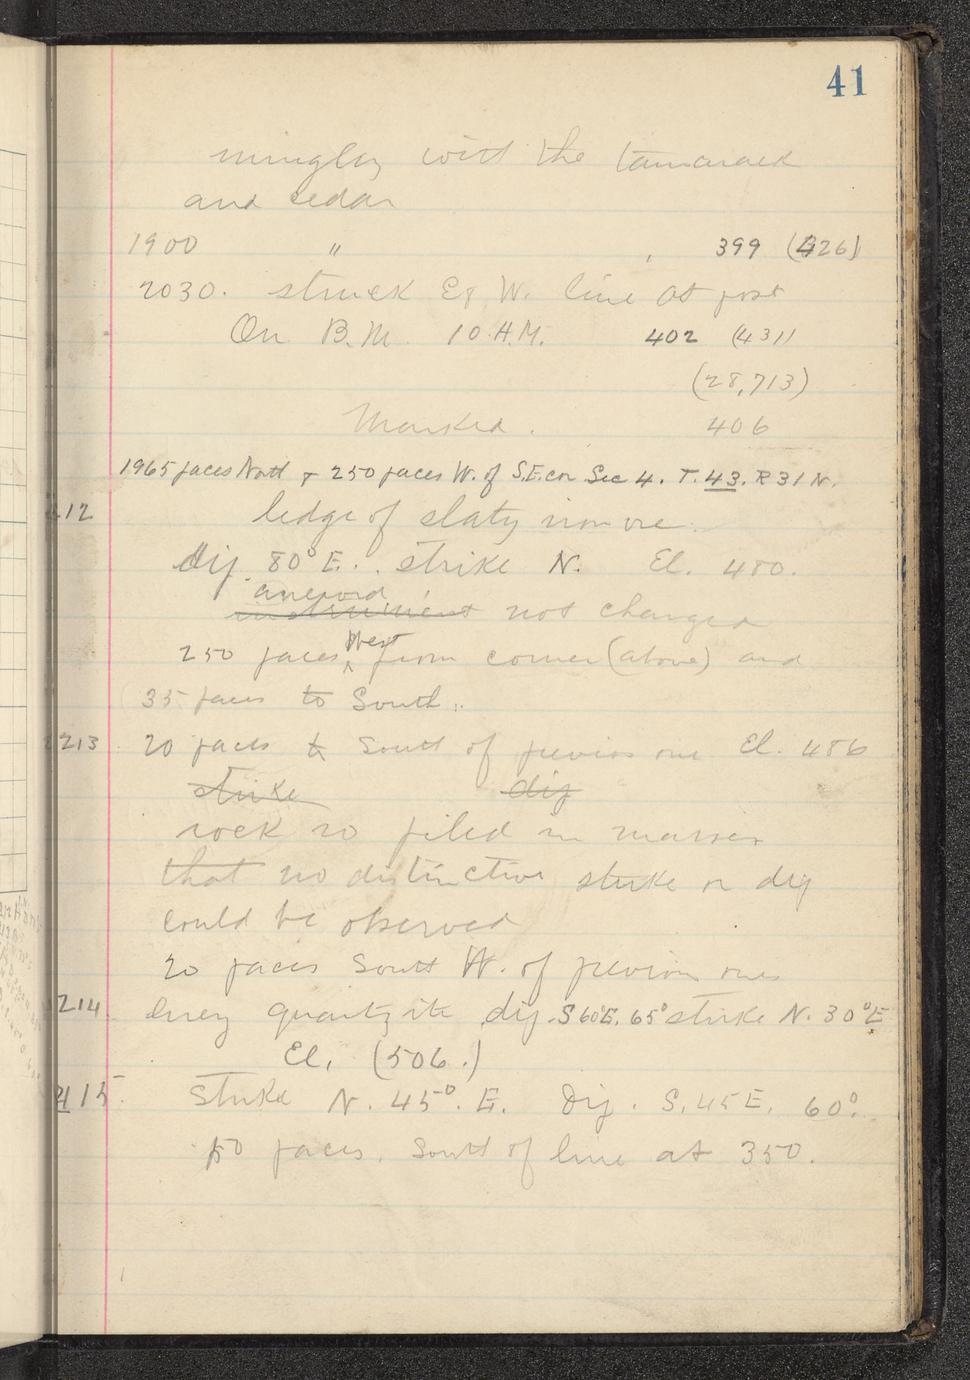 41
mingley with the tamarack
and cedar
1900 " 399 (426)
2030. struck E & W. line at post
On B.M. 10 A.M. 402 (431)
(28,713)
Marked. 406
1965 paces North & 250 paces W. of S.E. cor Sec 4. T. 43. R 31 W.
212 ledge of slaty iron ore.
dip 80° E. strike N. El. 480.
aneroid
instrument not changed
250 paces West from corner (above) and
35 paces to South.
213 20 paces to South of previous one El. 486
strike dip
rock so piled in masses
that no distinctive strike or dip
could be observed
20 paces South W. of previous ones
214 quartzite dip. S 60° E. 65° strike N. 30° E
El. (506.)
215. Strike N. 45°. E. Dip. S. 45 E. 60°.
50 paces. South of line at 350.